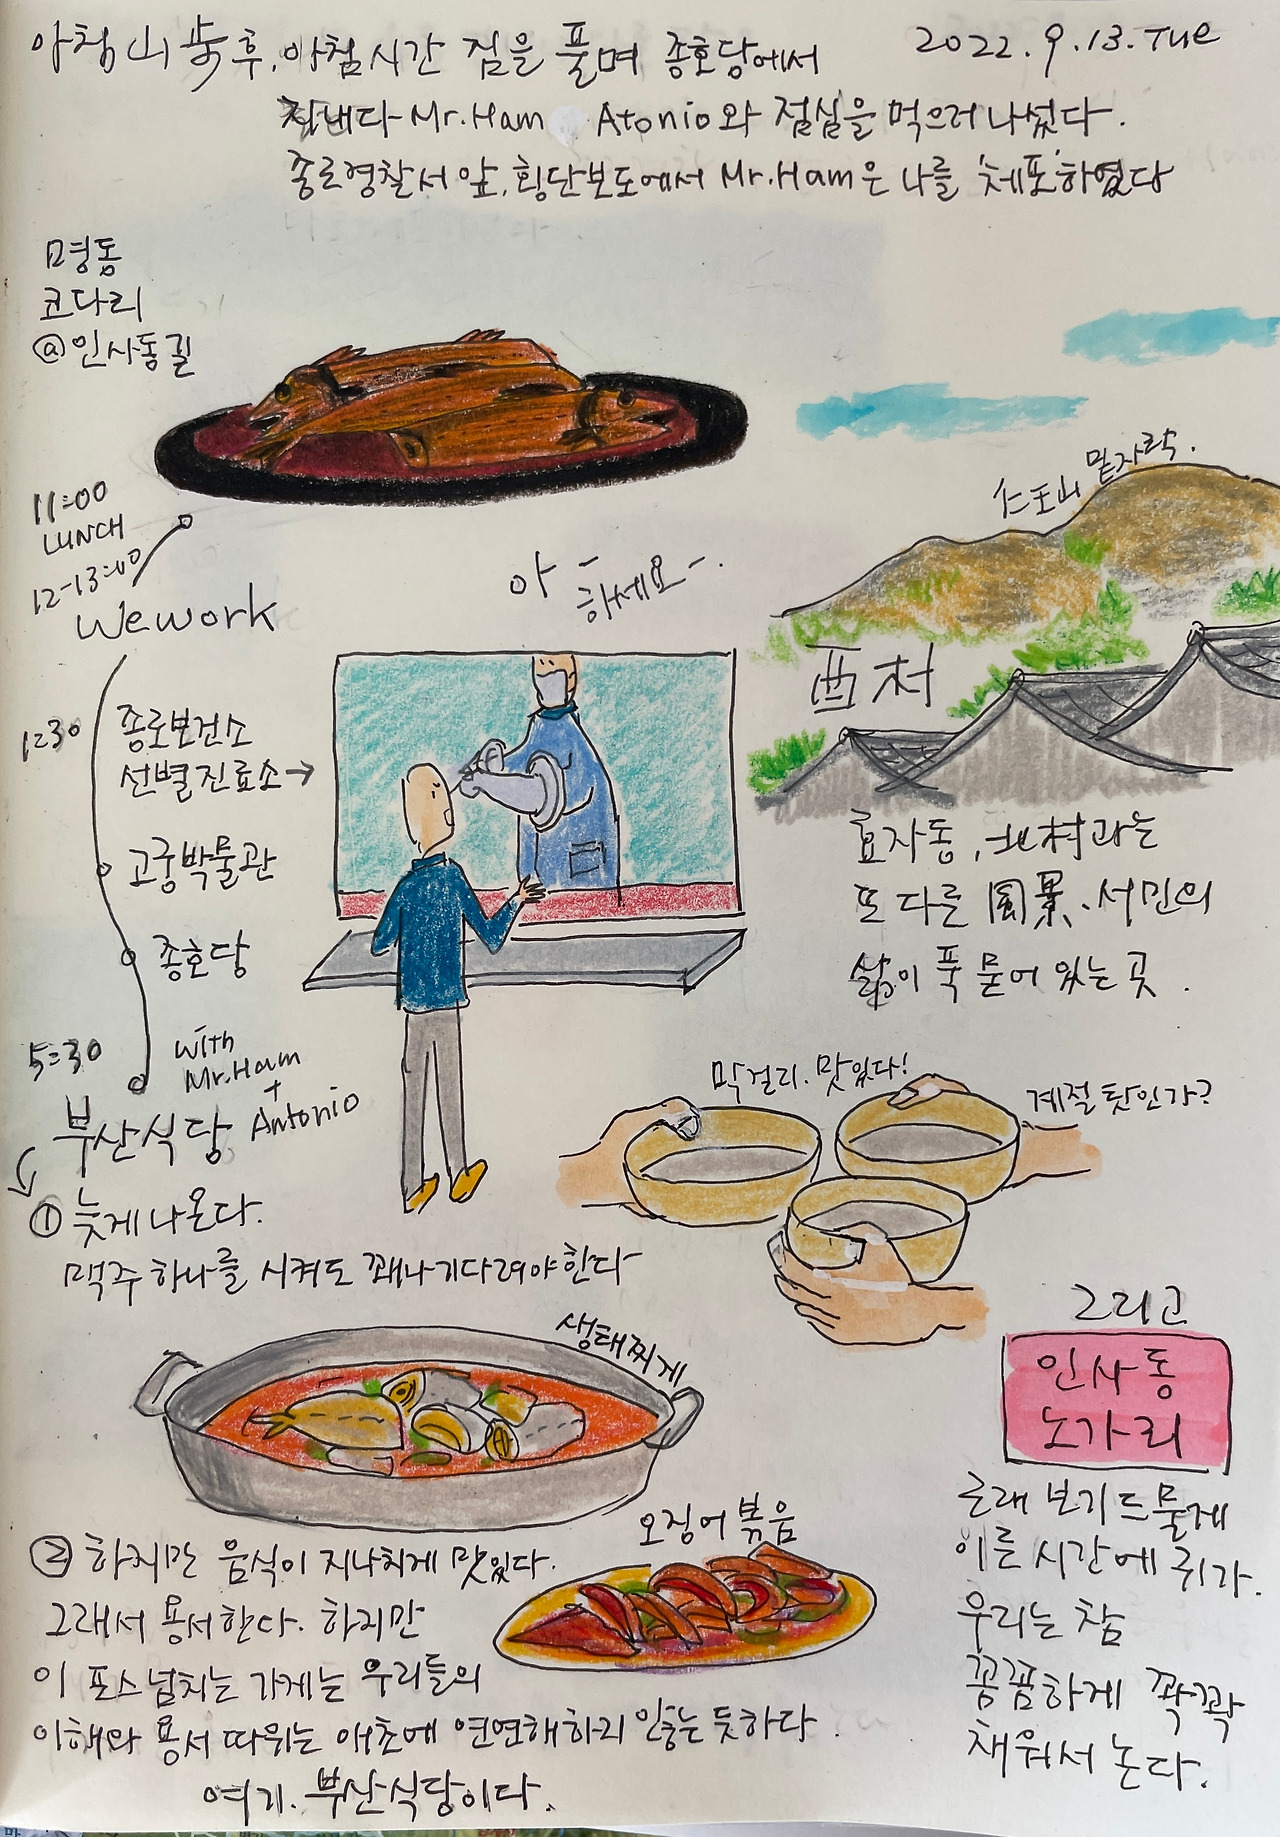 아침 山步 후, 아침시간 짐을 풀며 종호당에서
2022.9.13.Tue
지내다 Mr.Ham Atonio와 점심을 먹으러 나섰다.
종로경찰서 앞, 횡단보도에서 Mr.Ham은 나를 '체포'하였다
명동
코다리
@인사동길
仁王山 밑자락.
11:00
LUNCH
12-13:00
Wework
아-
하세요-.
西村
1:30
종로보건소
선별진료소→
고궁박물관
종호당
효자동, 北村과는
또 다른 風景. 서민의
삶이 푹 묻어 있는 곳.
5:30
with
Mr.Ham
+
Antonio
부산식당
막걸리. 맛있다!
계절 탓인가?
① 늦게 나온다.
맥주 하나를 시켜도 꽤나 기다려야 한다
생태찌게
그리고
인사동
노가리
오징어볶음
② 하지만 음식이 지나치게 맛있다.
그래서 용서한다. 하지만
이 포스 넘치는 가게는 우리들의
이해와 용서 따위는 애초에 연연해하지 않는 듯하다.
여기. 부산식당이다.
근래 보기 드물게
이른 시간에 귀가.
우리는 참
꼼꼼하게 꽉꽉
채워서 논다.